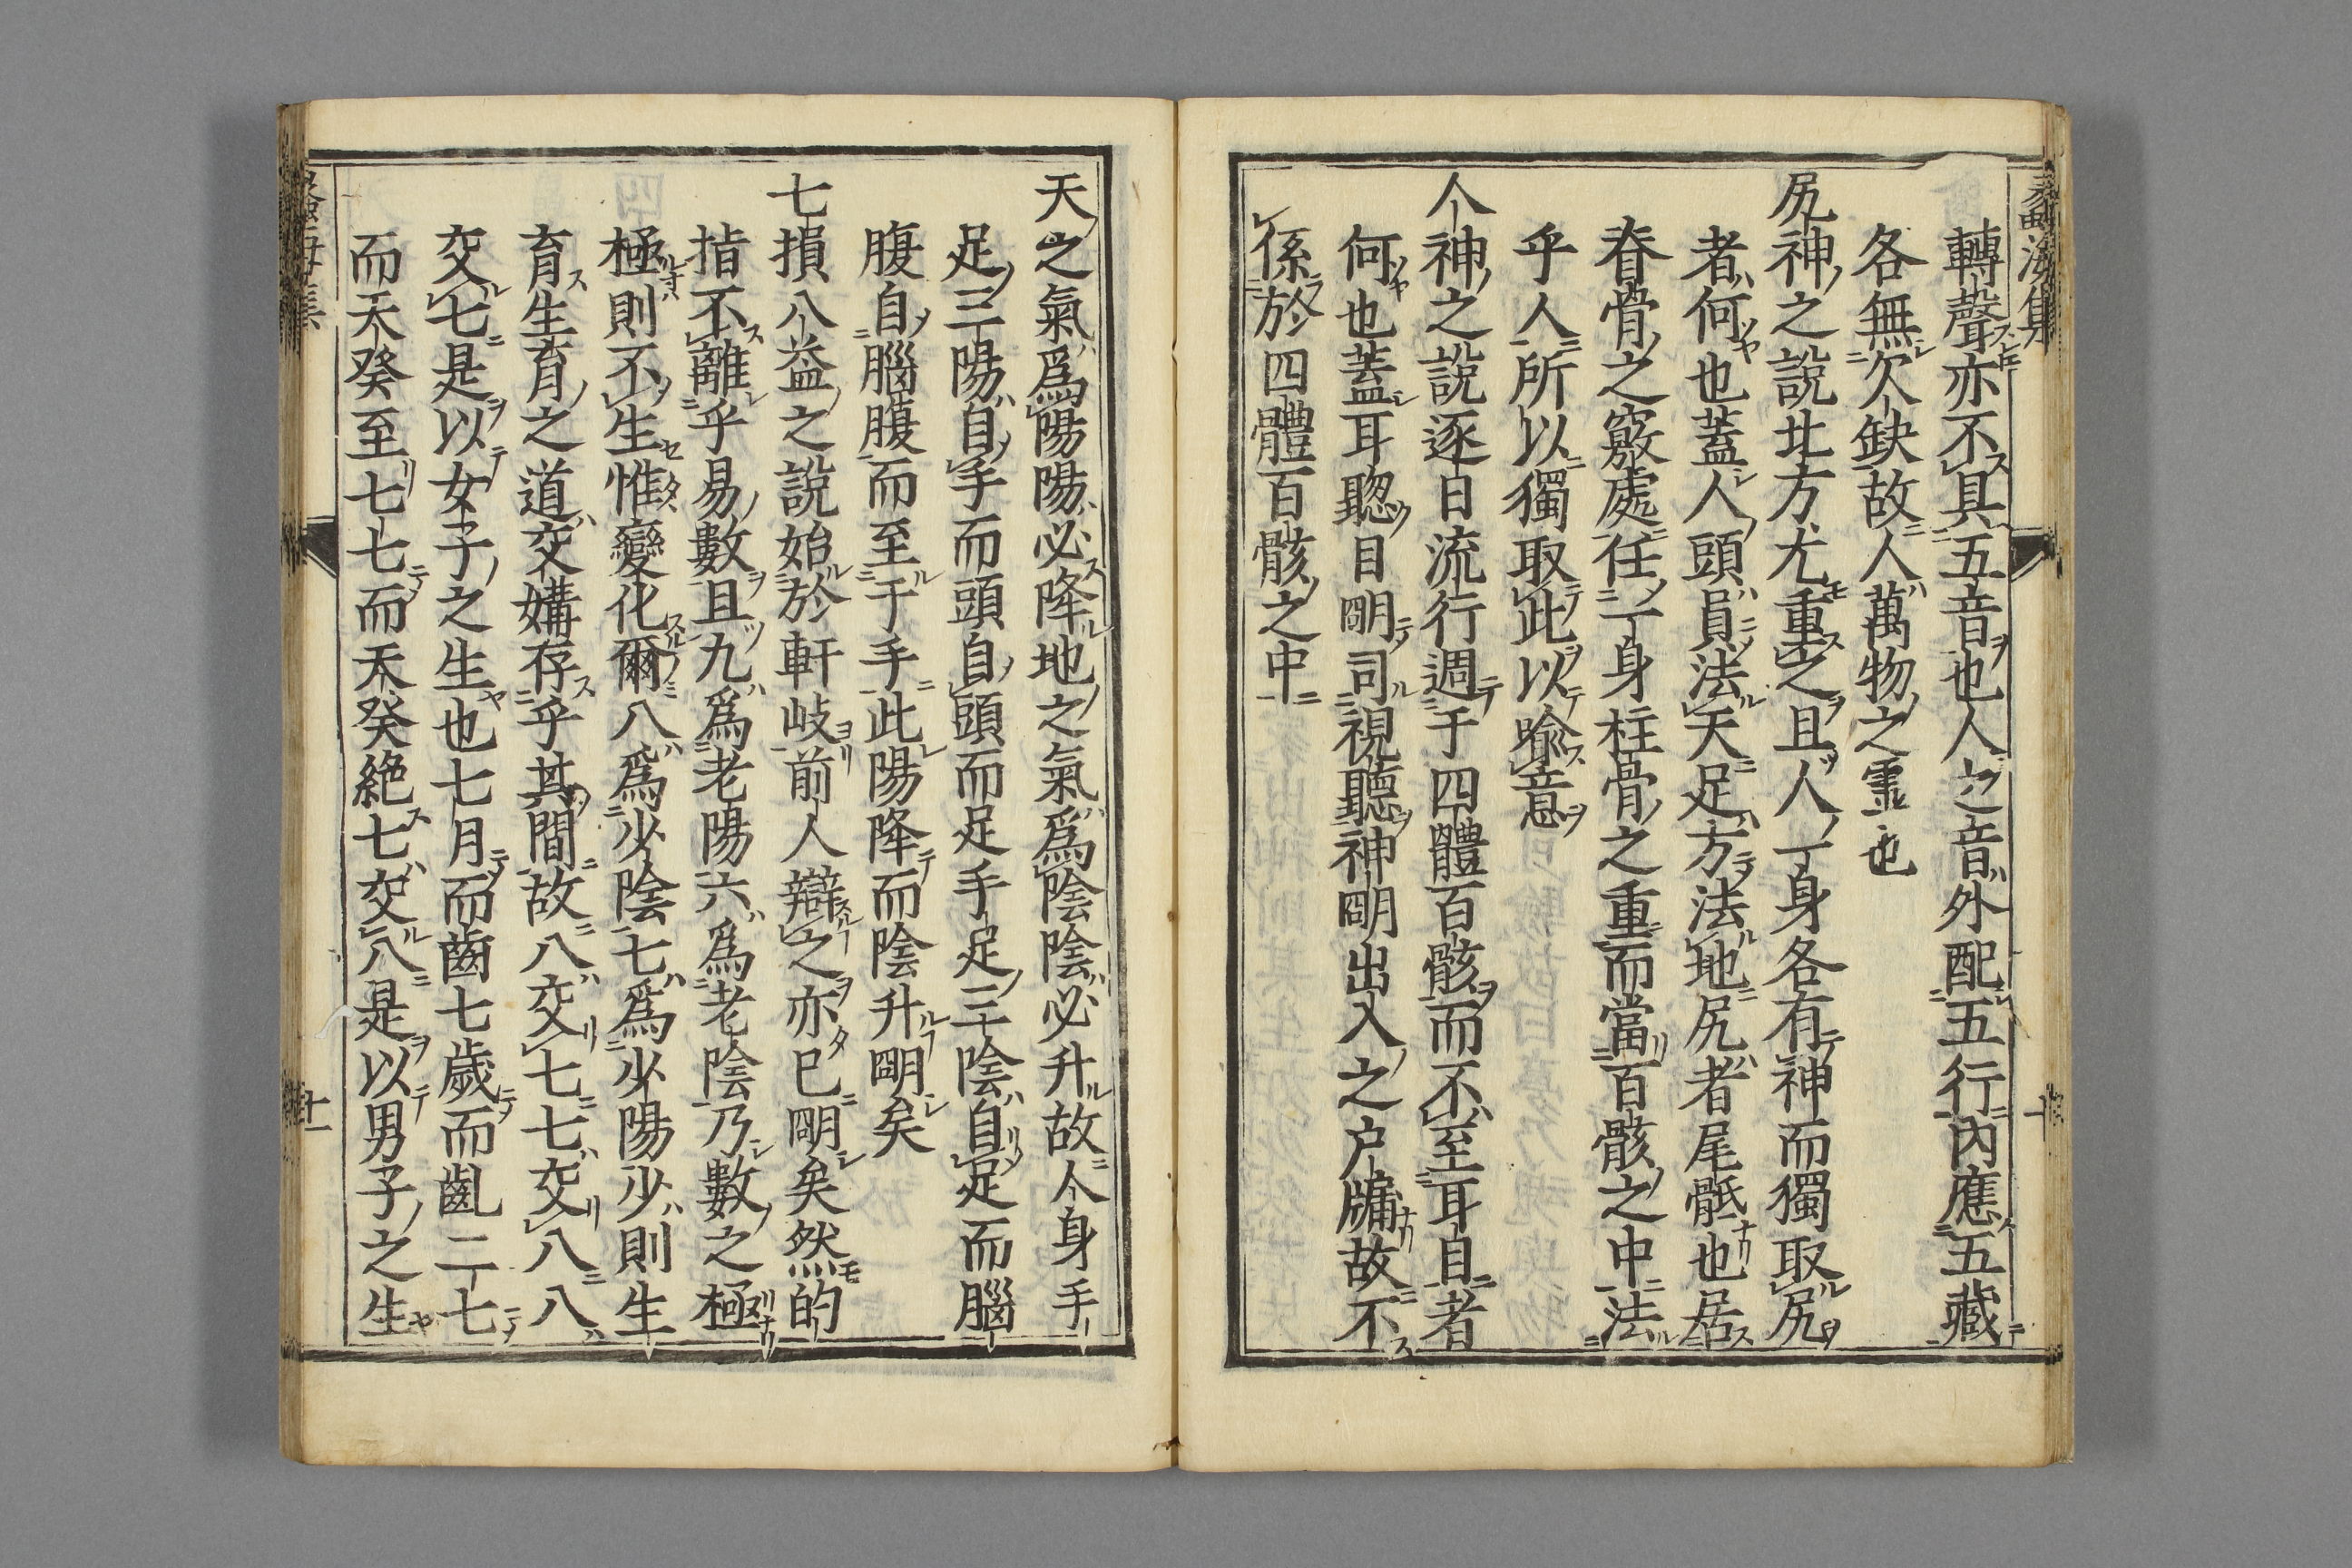 轉聲亦不具五音也人之音外配五行內應五藏
各無欠缺故人萬物之霊也
尻神之說北方尤重之且人一身各有神而獨取尻
者何也蓋人頭員法天足方法地尻者尾骶也居
脊骨之竅處任一身柱骨之重而當百骸之中法
乎人所以獨取此以喩意
人神之說逐日流行週于四體百骸而不至耳自者
何也蓋耳聰目明司視聽神明出入之户牖故不
係於四體百骸之中
天之氣爲陽陽必降地之氣爲陰陰必升故人身手
足三陽自手而頭自頭而足手足三陰自足而腦
腹自腦腹而至于手此陽降而陰升明矣
七損八益之說始於軒岐前人辯之亦已明矣然的
指不離乎易數且九爲老陽六爲老陰乃數之極
極則不生惟變化爾八爲少陰七爲少陽少則生
育生育之道交媾存乎其間故八交七七交八八
交七是以女子之生也七月而齒七歲而齓二七
而天癸至七七而天癸絶七交八是以男子之生